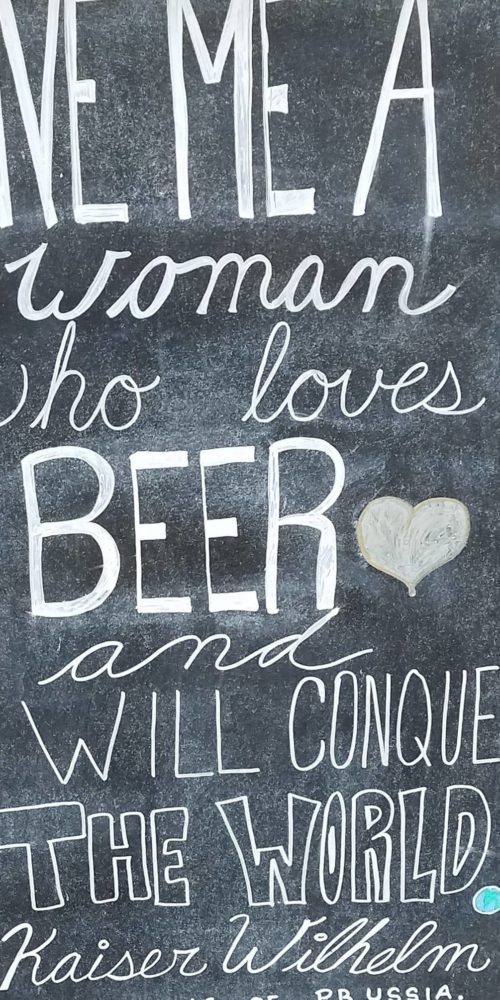 VE ME A
woman
who loves
BEER
and
WILL CONQUE
THE WORLD
Kaiser Wilhelm
OF PRUSSIA.